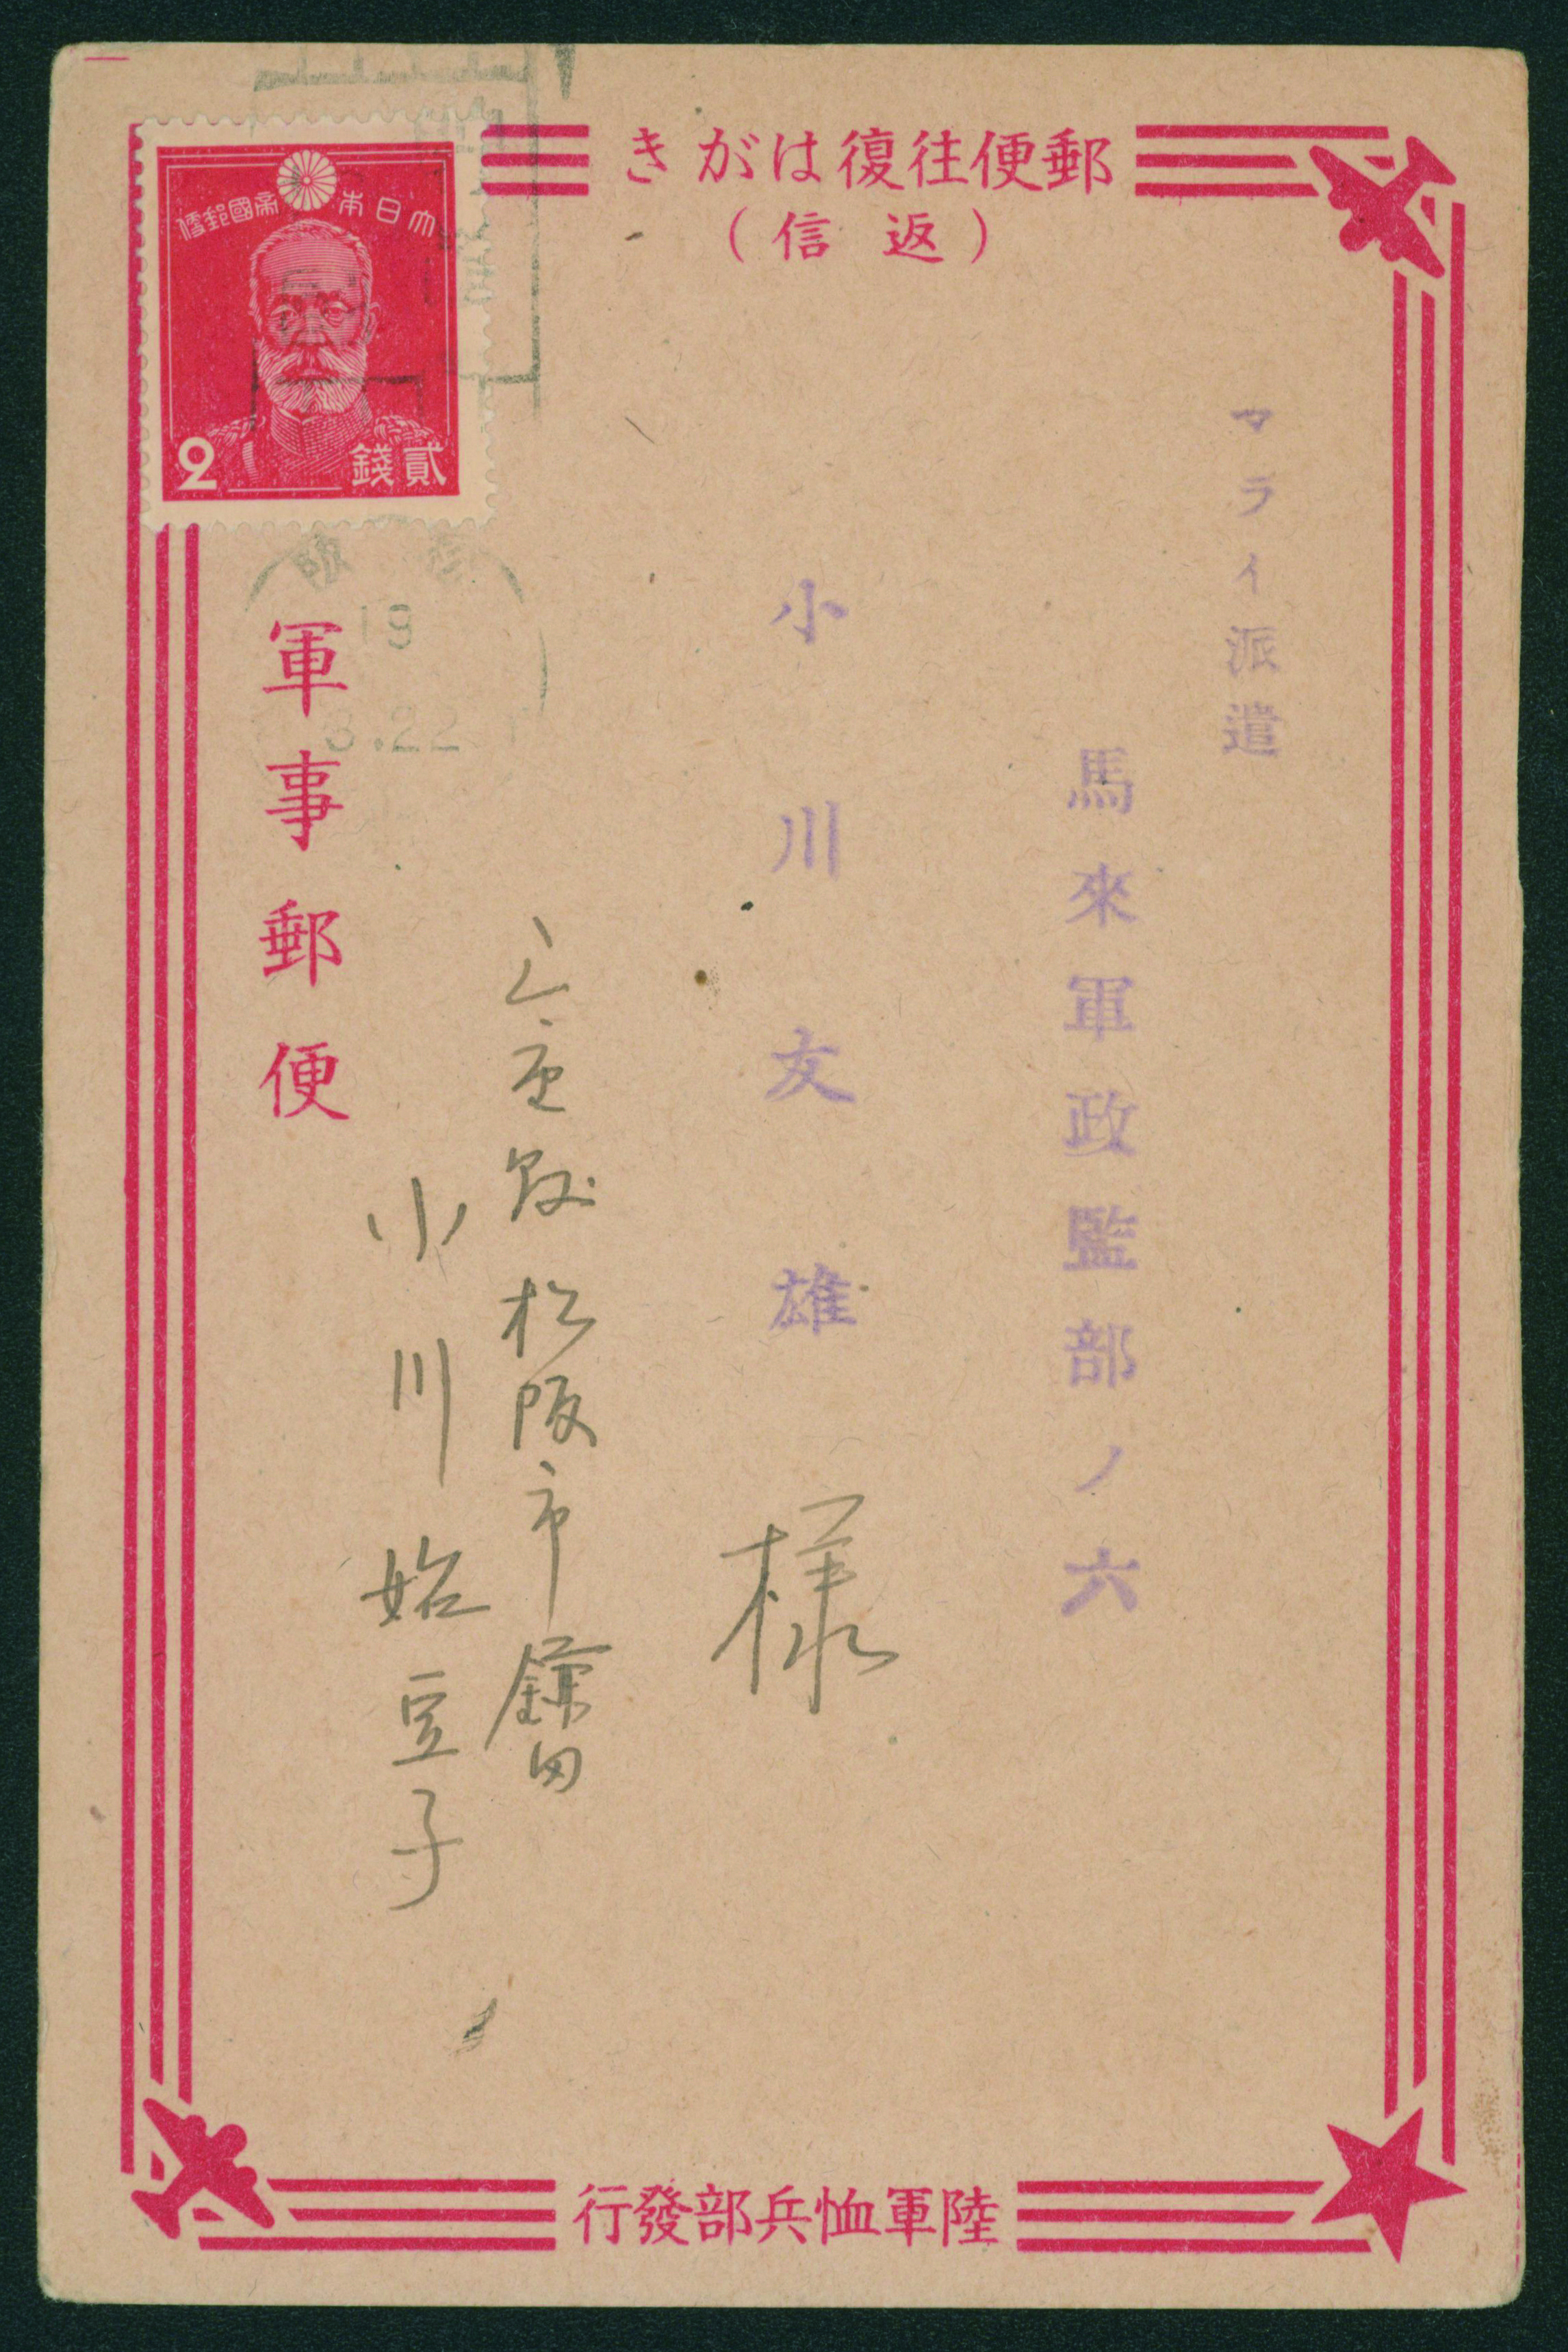 郵便往復はがき
（返信）
大日本帝國郵便
2 貳錢
マライ派遣
馬來軍政監部ノ六
小川友雄
様
三重縣松阪市鎌田
小川
豆子
19
3.22
軍事郵便
陸軍恤兵部發行